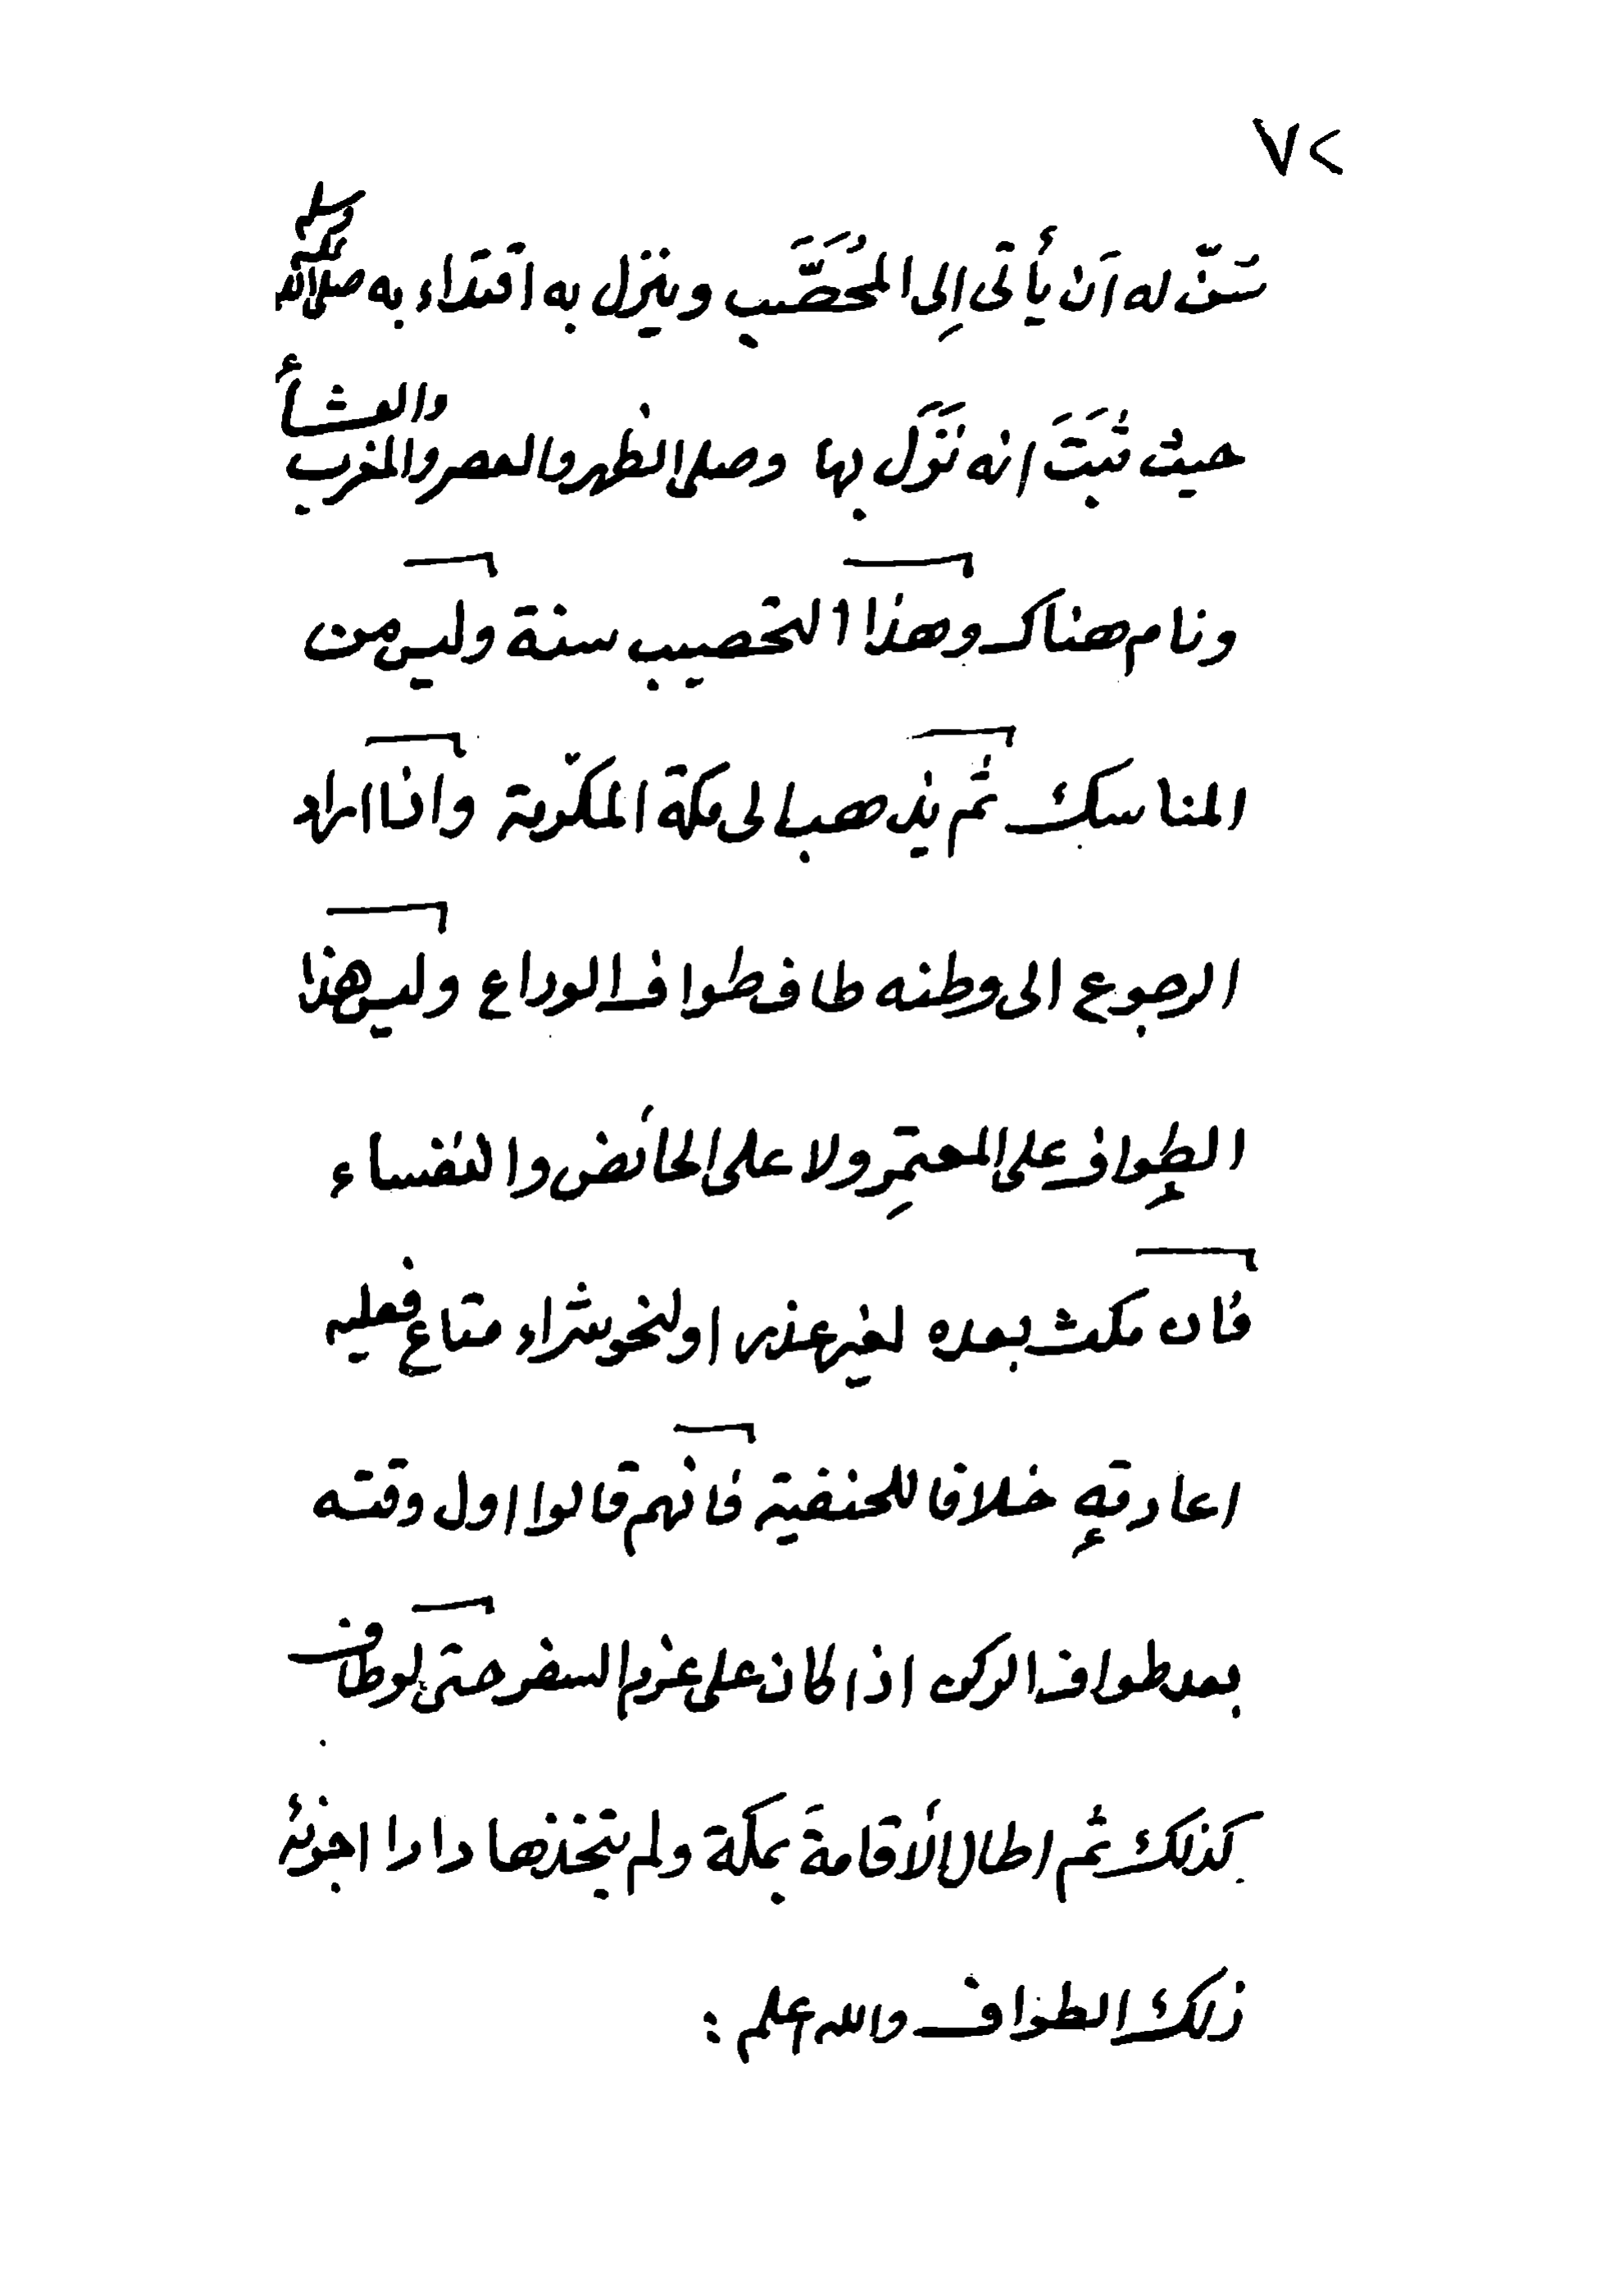 ٧٢
سَنّ له اَن يأتى اِلى المُحَصَّب وينزل به اقتدَاء به صلى الله عليه وسلم
حيث ثبَتَ انه نَزَل بها وصلى الظهر والعصر والمغرب والعشأ
ونام هناك وهذا التحصيب سنة وليس من
المناسك ثم يذهب الى مكة المكرّمة وانا اراد
الرجوع الى وطنه طاف طواف الوداع وليس هذا
الطواف على المعتمِر ولا على الحائض والنفساء
فان مكث بعده لغير عذر اولنحو شراء متاع فعليه
اعادته خلافا للحنفية فانهم قالوا اول وقته
بعد طواف الركن اذا كان على عزم السفر حتى لوطاف
كذلك ثم اطال الأقامةَ بمكة ولم يتخذها دارا اجزئه
ذلك الطواف والله اعلم :